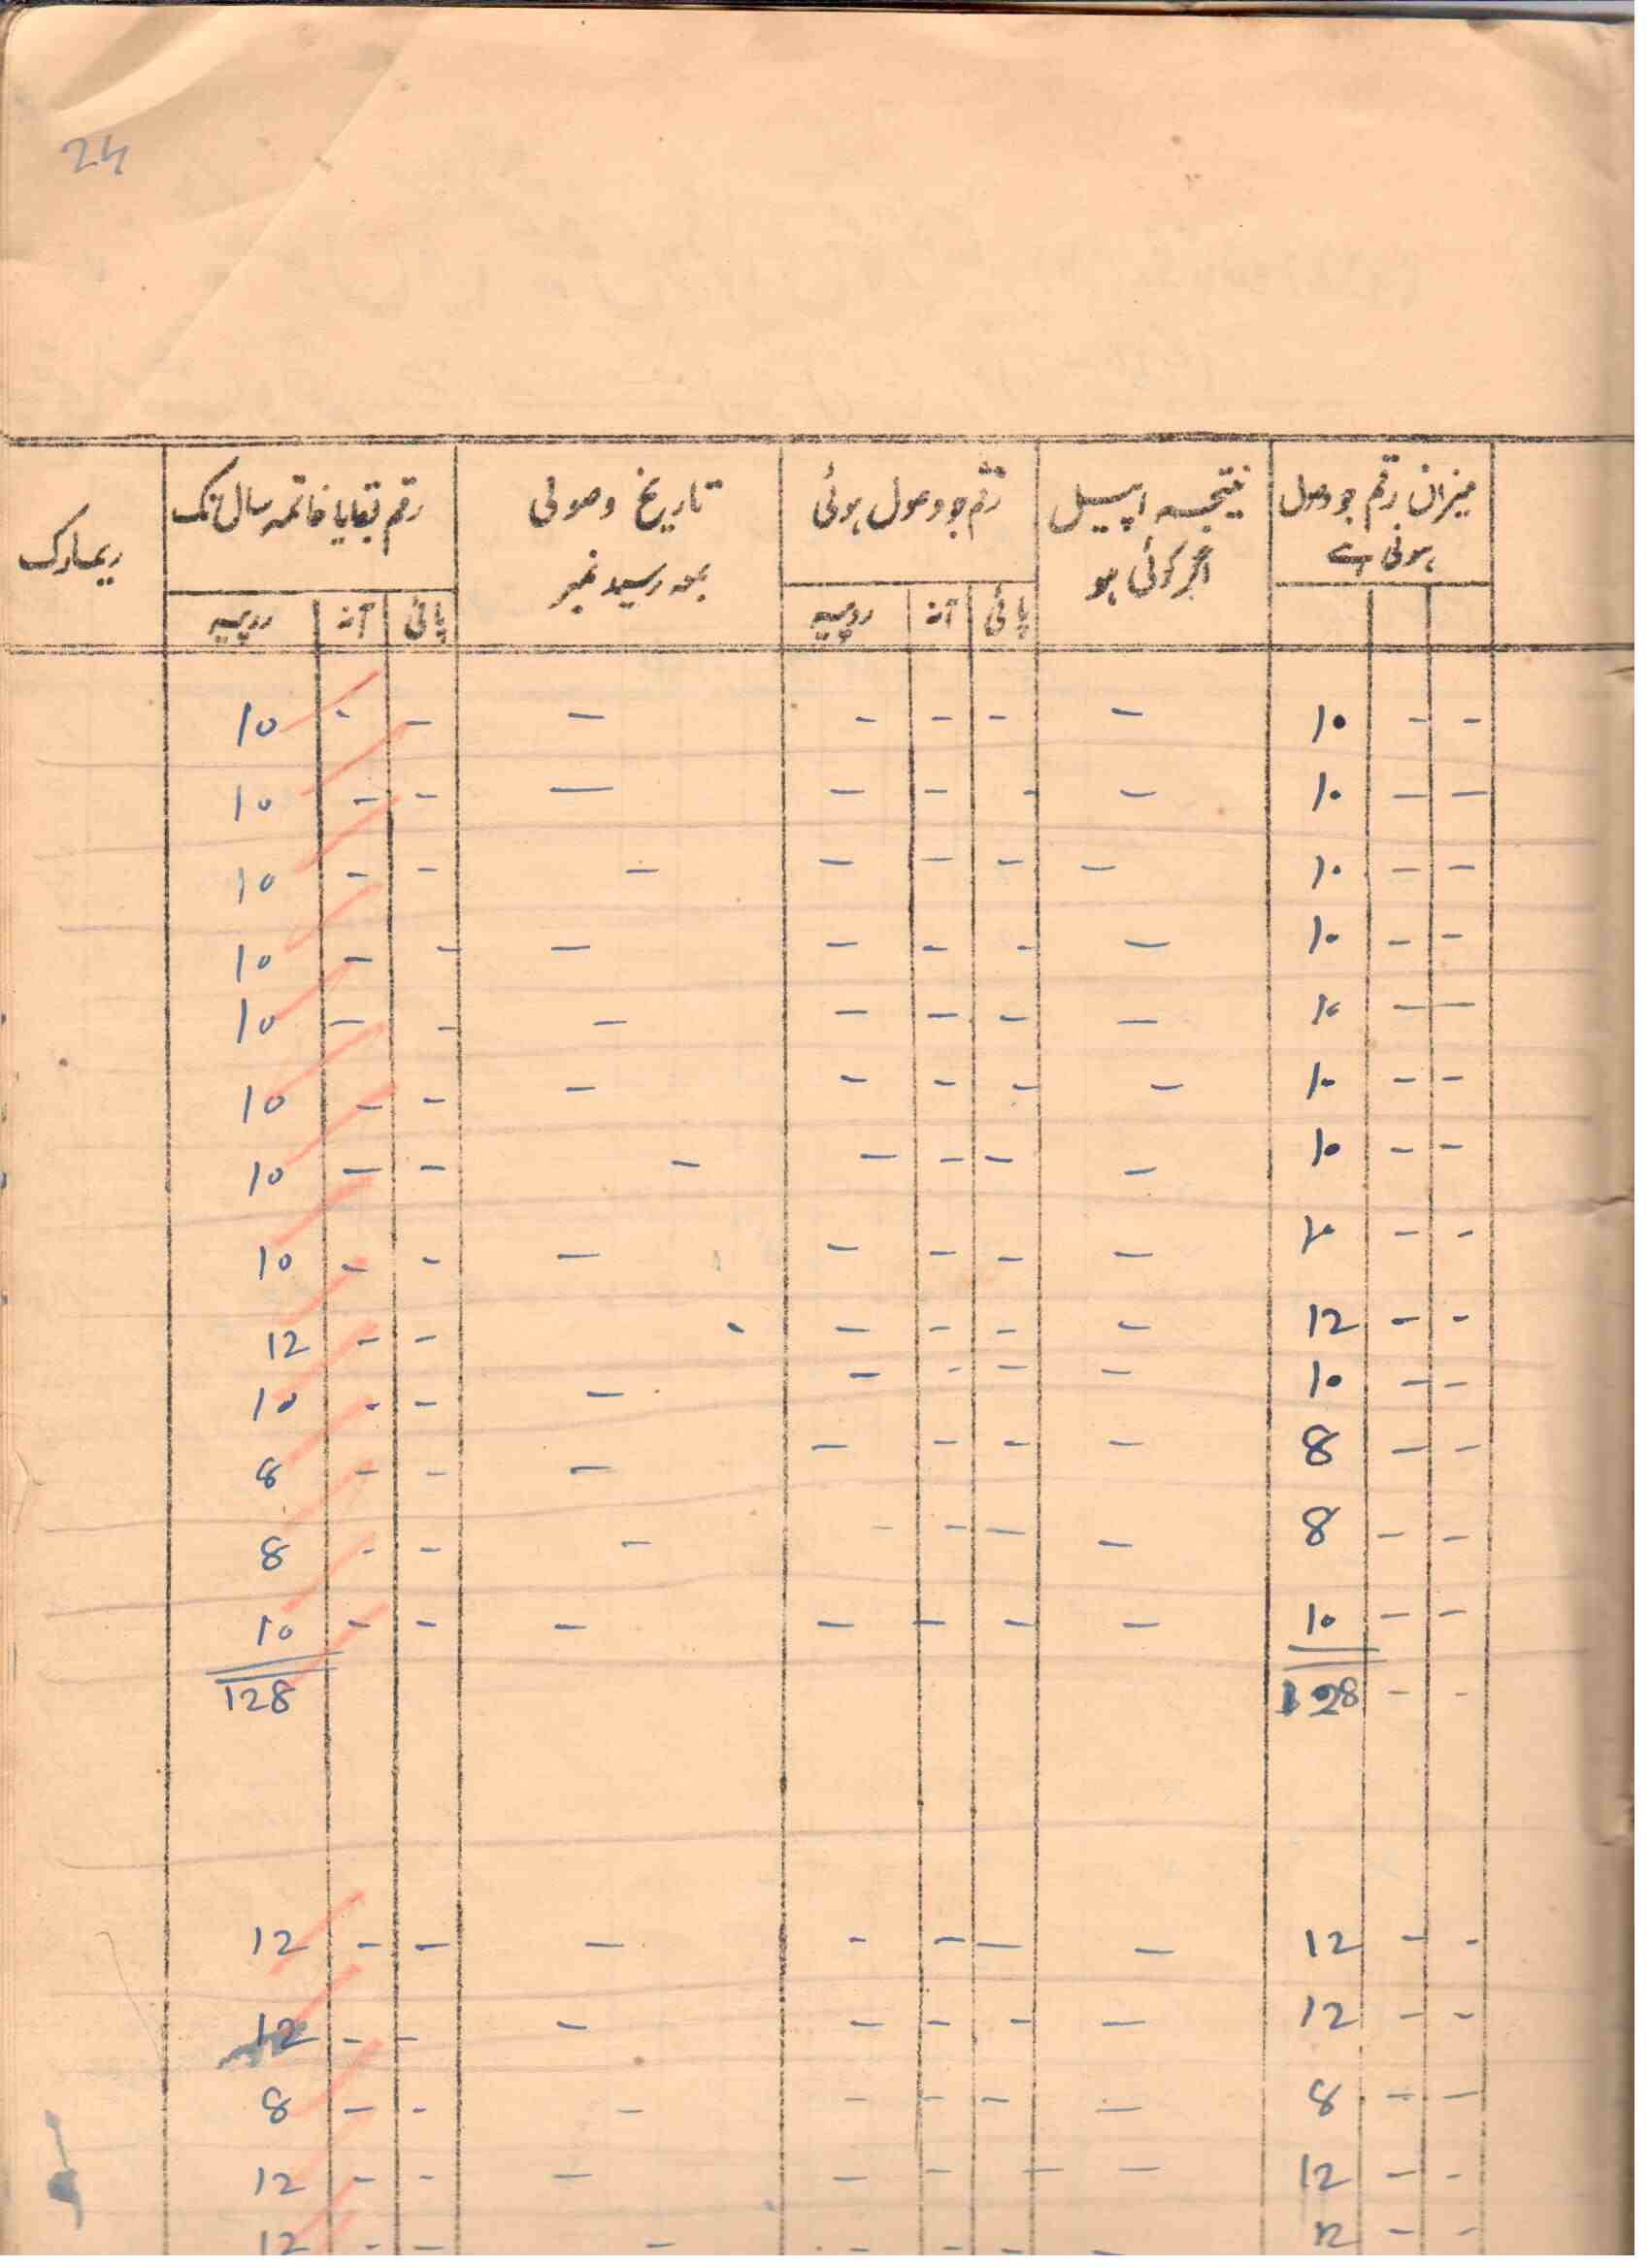 24
میزان رقم جو وصول ہونی ہے | نتیجہ اپیل اگر کوئی ہو | رقم جو وصول ہوئی | تاریخ وصولی بمعہ رسید نمبر | رقم بقایا خاتمہ سال تک | ریمارک
پائی | آنہ | روپیہ | پائی | آنہ | روپیہ
- - 10 | - | - - - | - | - - 10
- - 10 | - | - - - | - | - - 10
- - 10 | - | - - - | - | - - 10
- - 10 | - | - - - | - | - - 10
- - 10 | - | - - - | - | - - 10
- - 10 | - | - - - | - | - - 10
- - 10 | - | - - - | - | - - 10
- - 10 | - | - - - | - | - - 10
- - 12 | - | - - - | - | - - 12
- - 10 | - | - - - | - | - - 10
- - 8 | - | - - - | - | - - 8
- - 8 | - | - - - | - | - - 8
- - 10 | - | - - - | - | - - 10
- - 128 | 128
- - 12 | - | - - - | - | - - 12
- - 12 | - | - - - | - | - - 12
- - 8 | - | - - - | - | - - 8
- - 12 | - | - - - | - | - - 12
- - 12 | - | - - - | - | - - 12